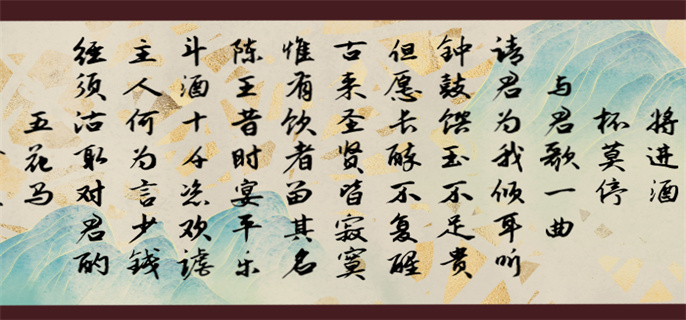 将进酒
杯莫停
与君歌一曲
请君为我倾耳听
钟鼓馔玉不足贵
但愿长醉不复醒
古来圣贤皆寂寞
惟有饮者留其名
陈王昔时宴平乐
斗酒十千恣欢谑
主人何为言少钱
径须沽取对君酌
五花马